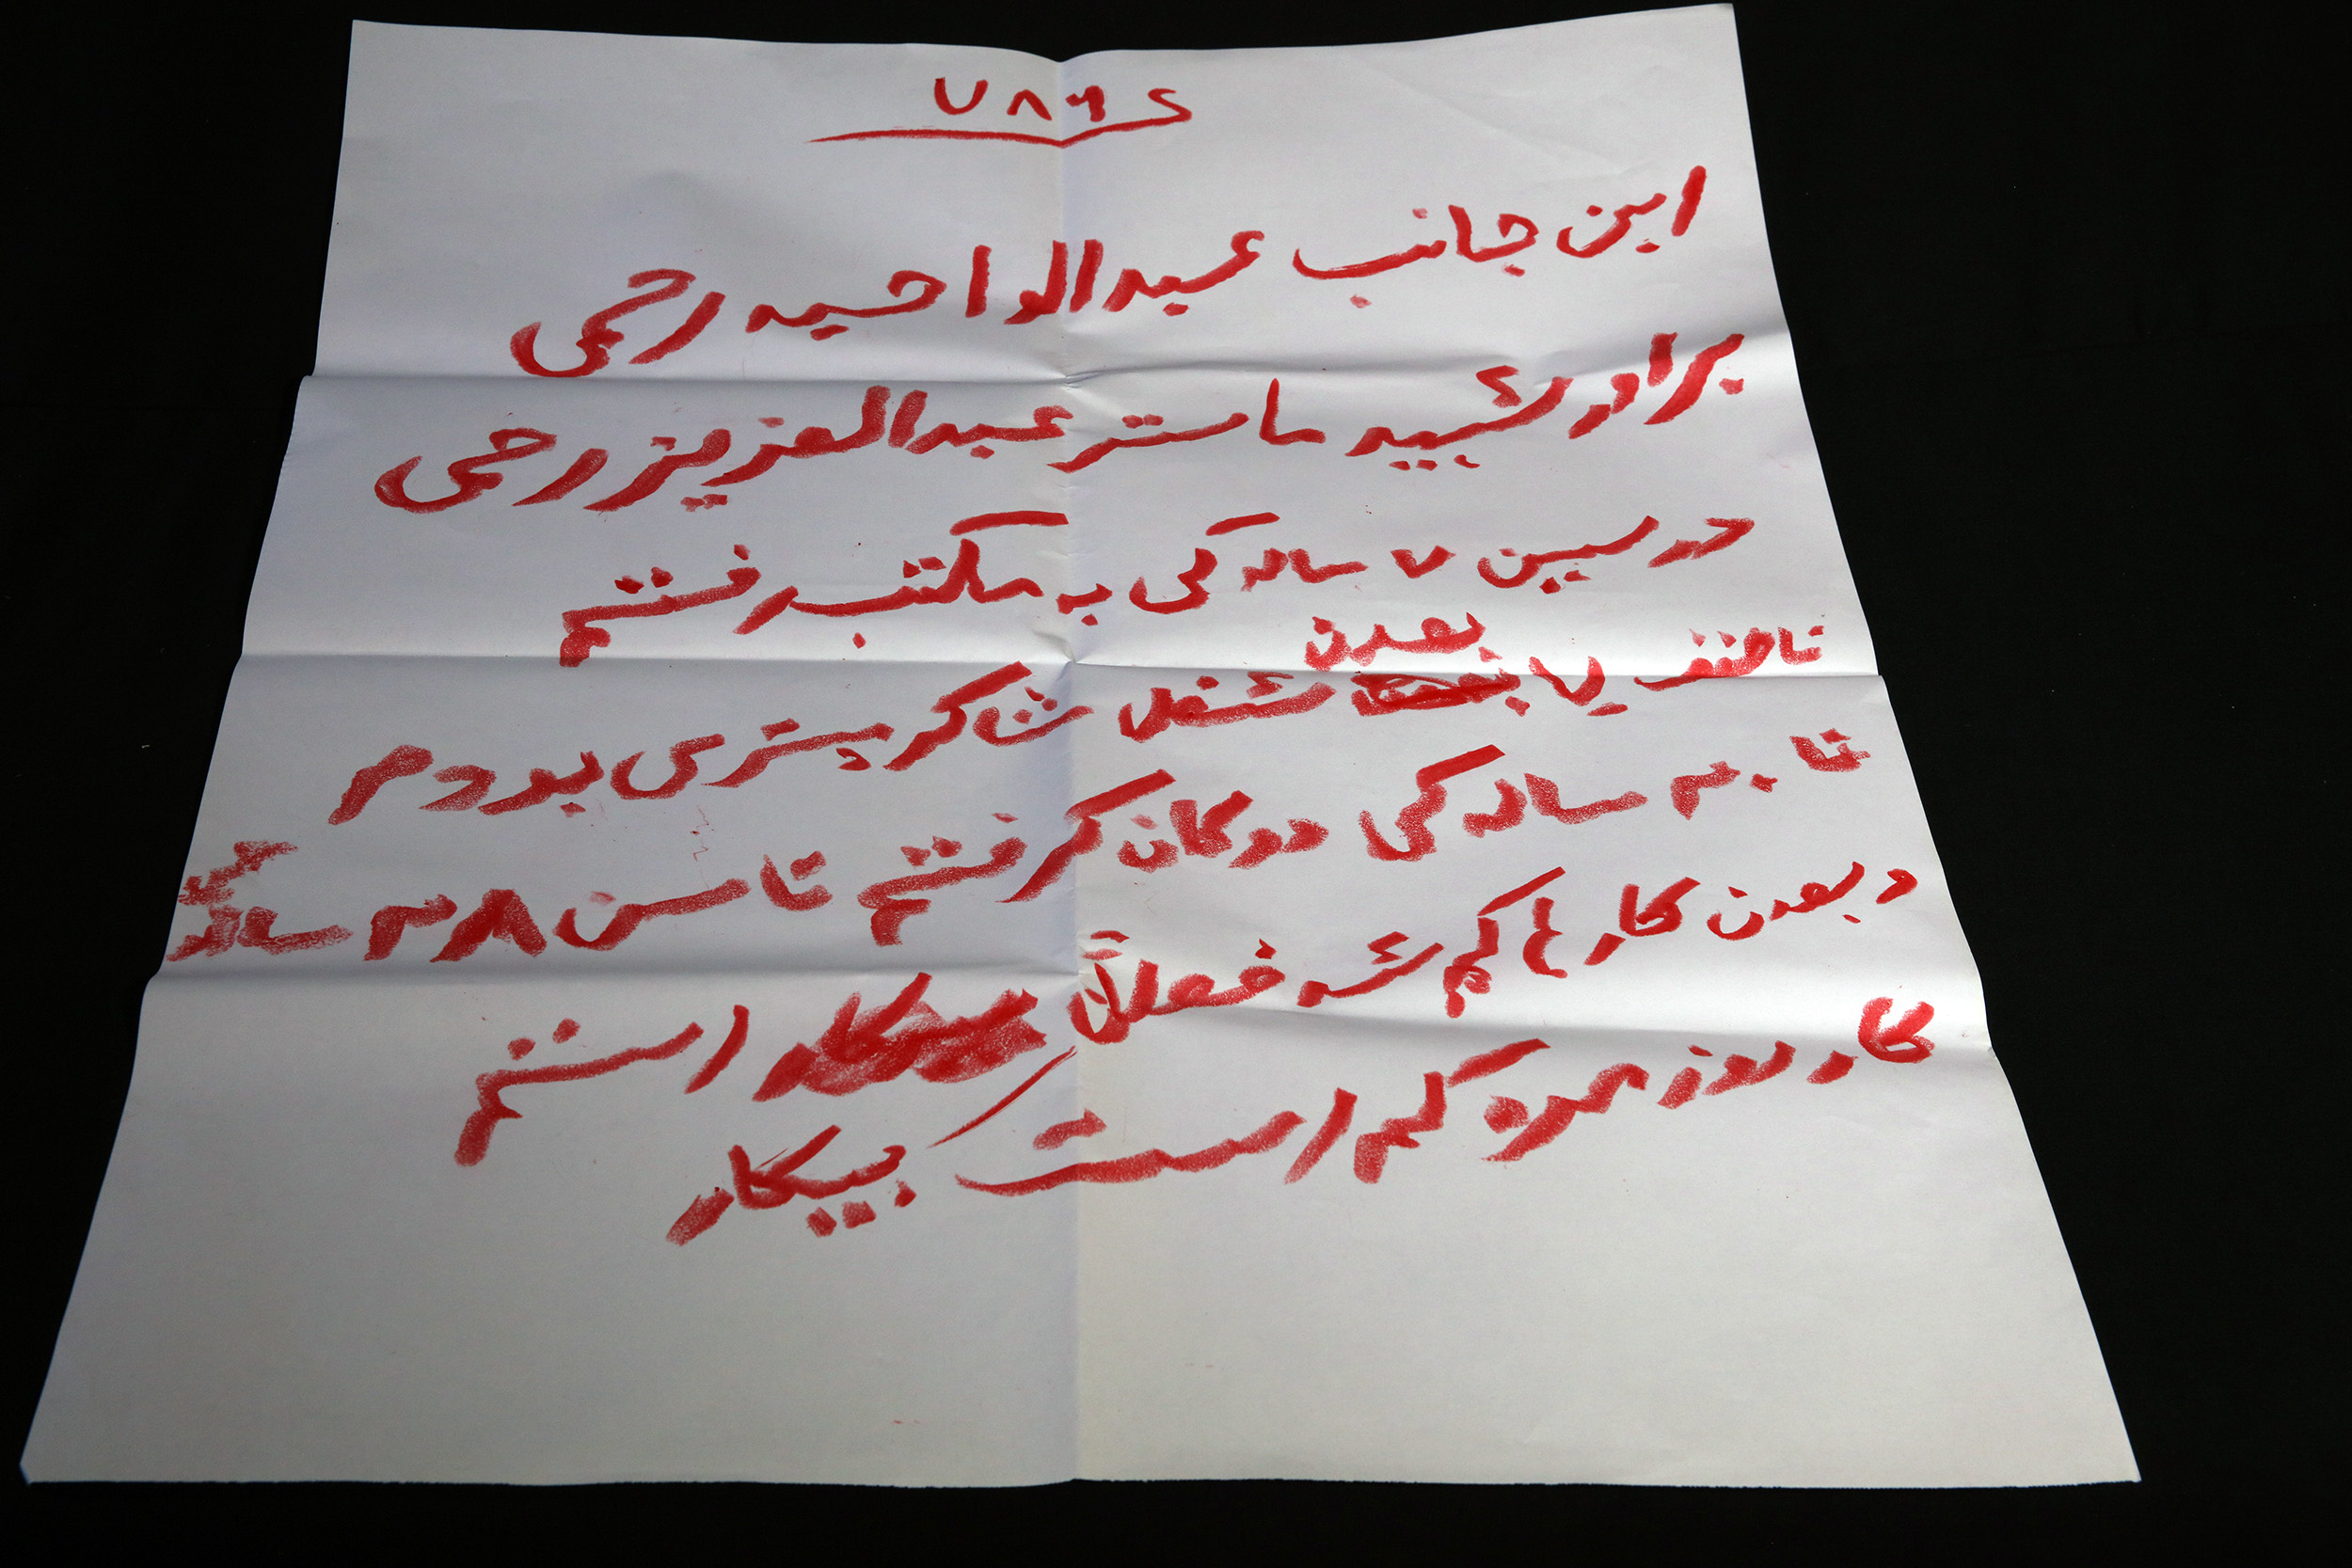 ۷۸۶
این جانب عبدالواحید رحمی
برادر شهید ماستر عبدالعزیز رحمی
در سنین ۷ ساله گی به مکتب رفتم
تا صنف بعدن شغل شاگر پنتری بودم
تا ۲۰ ساله گی دوکان گرفتم تا سن ساله گی
و بعدن کار ها کم شد فعلاً بیکار استم
کار روز مره کم است بیکار